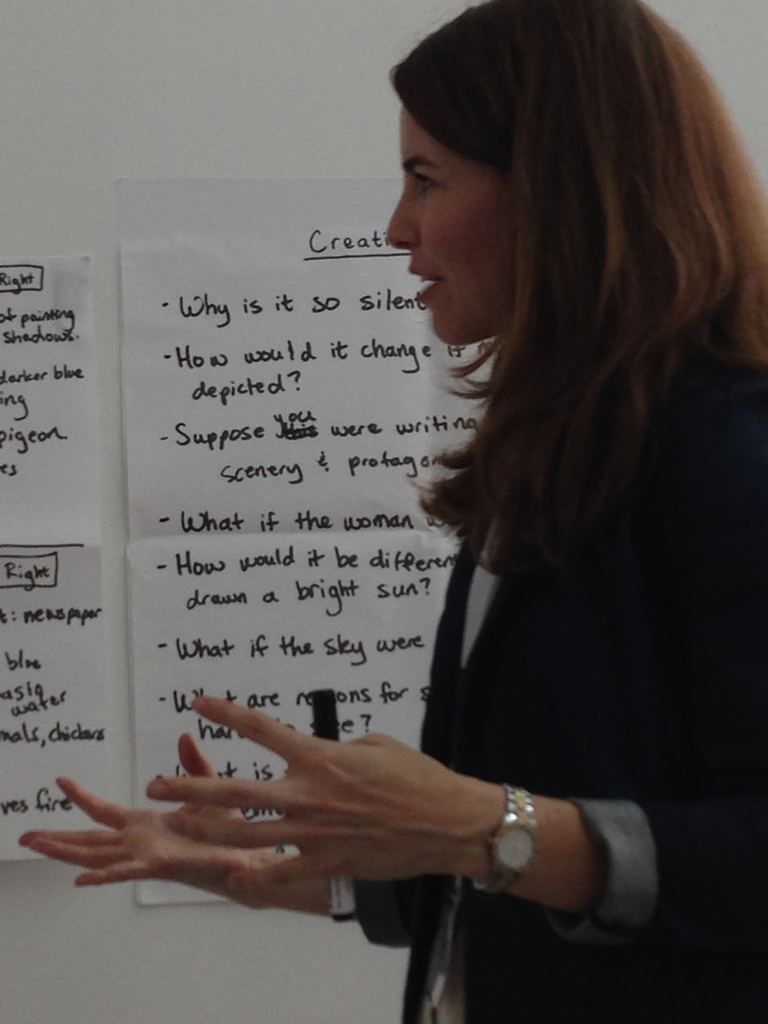 Right
of painting
shadows.
darker blue
ing
pigeon
es
Right
t: newspaper
blue
water
mals, chickens
ves fire
Creati
- Why is it so silent
- How would it change if
depicted?
- Suppose you were writing
scenery & protagon
- What if the woman w
- How would it be different
drawn a bright sun?
- What if the sky were
- What are reasons for s
?
- What is